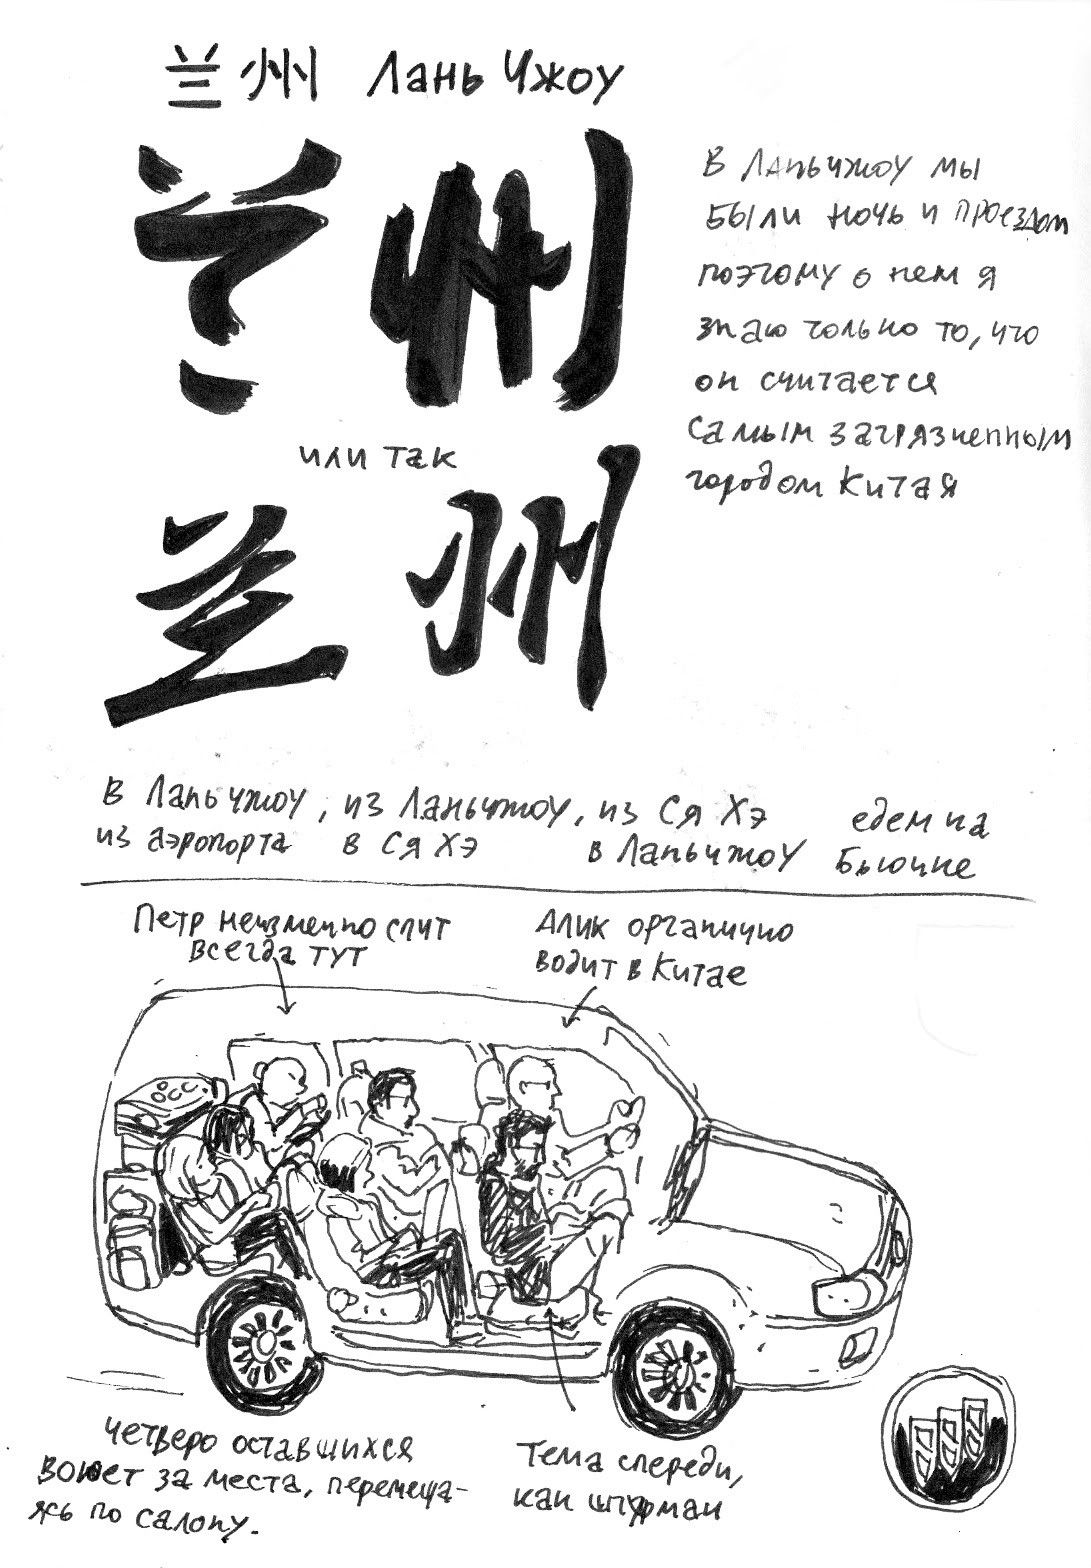 兰州 Лань Чжоу
兰州
или так
兰州
В Ланьчжоу мы
были ночь и проездом
поэтому о нем я
знаю только то, что
он считается
самым загрязненным
городом Китая
В Ланьчжоу, из Ланьчжоу, из Ся Хэ едем на
из аэропорта в Ся Хэ в Ланьчжоу Бьюике
Петр неизменно спит
всегда тут
Алик органично
водит в Китае
четверо оставшихся
воюет за места, перемеща-
ясь по салону.
Тема спереди,
как штурман